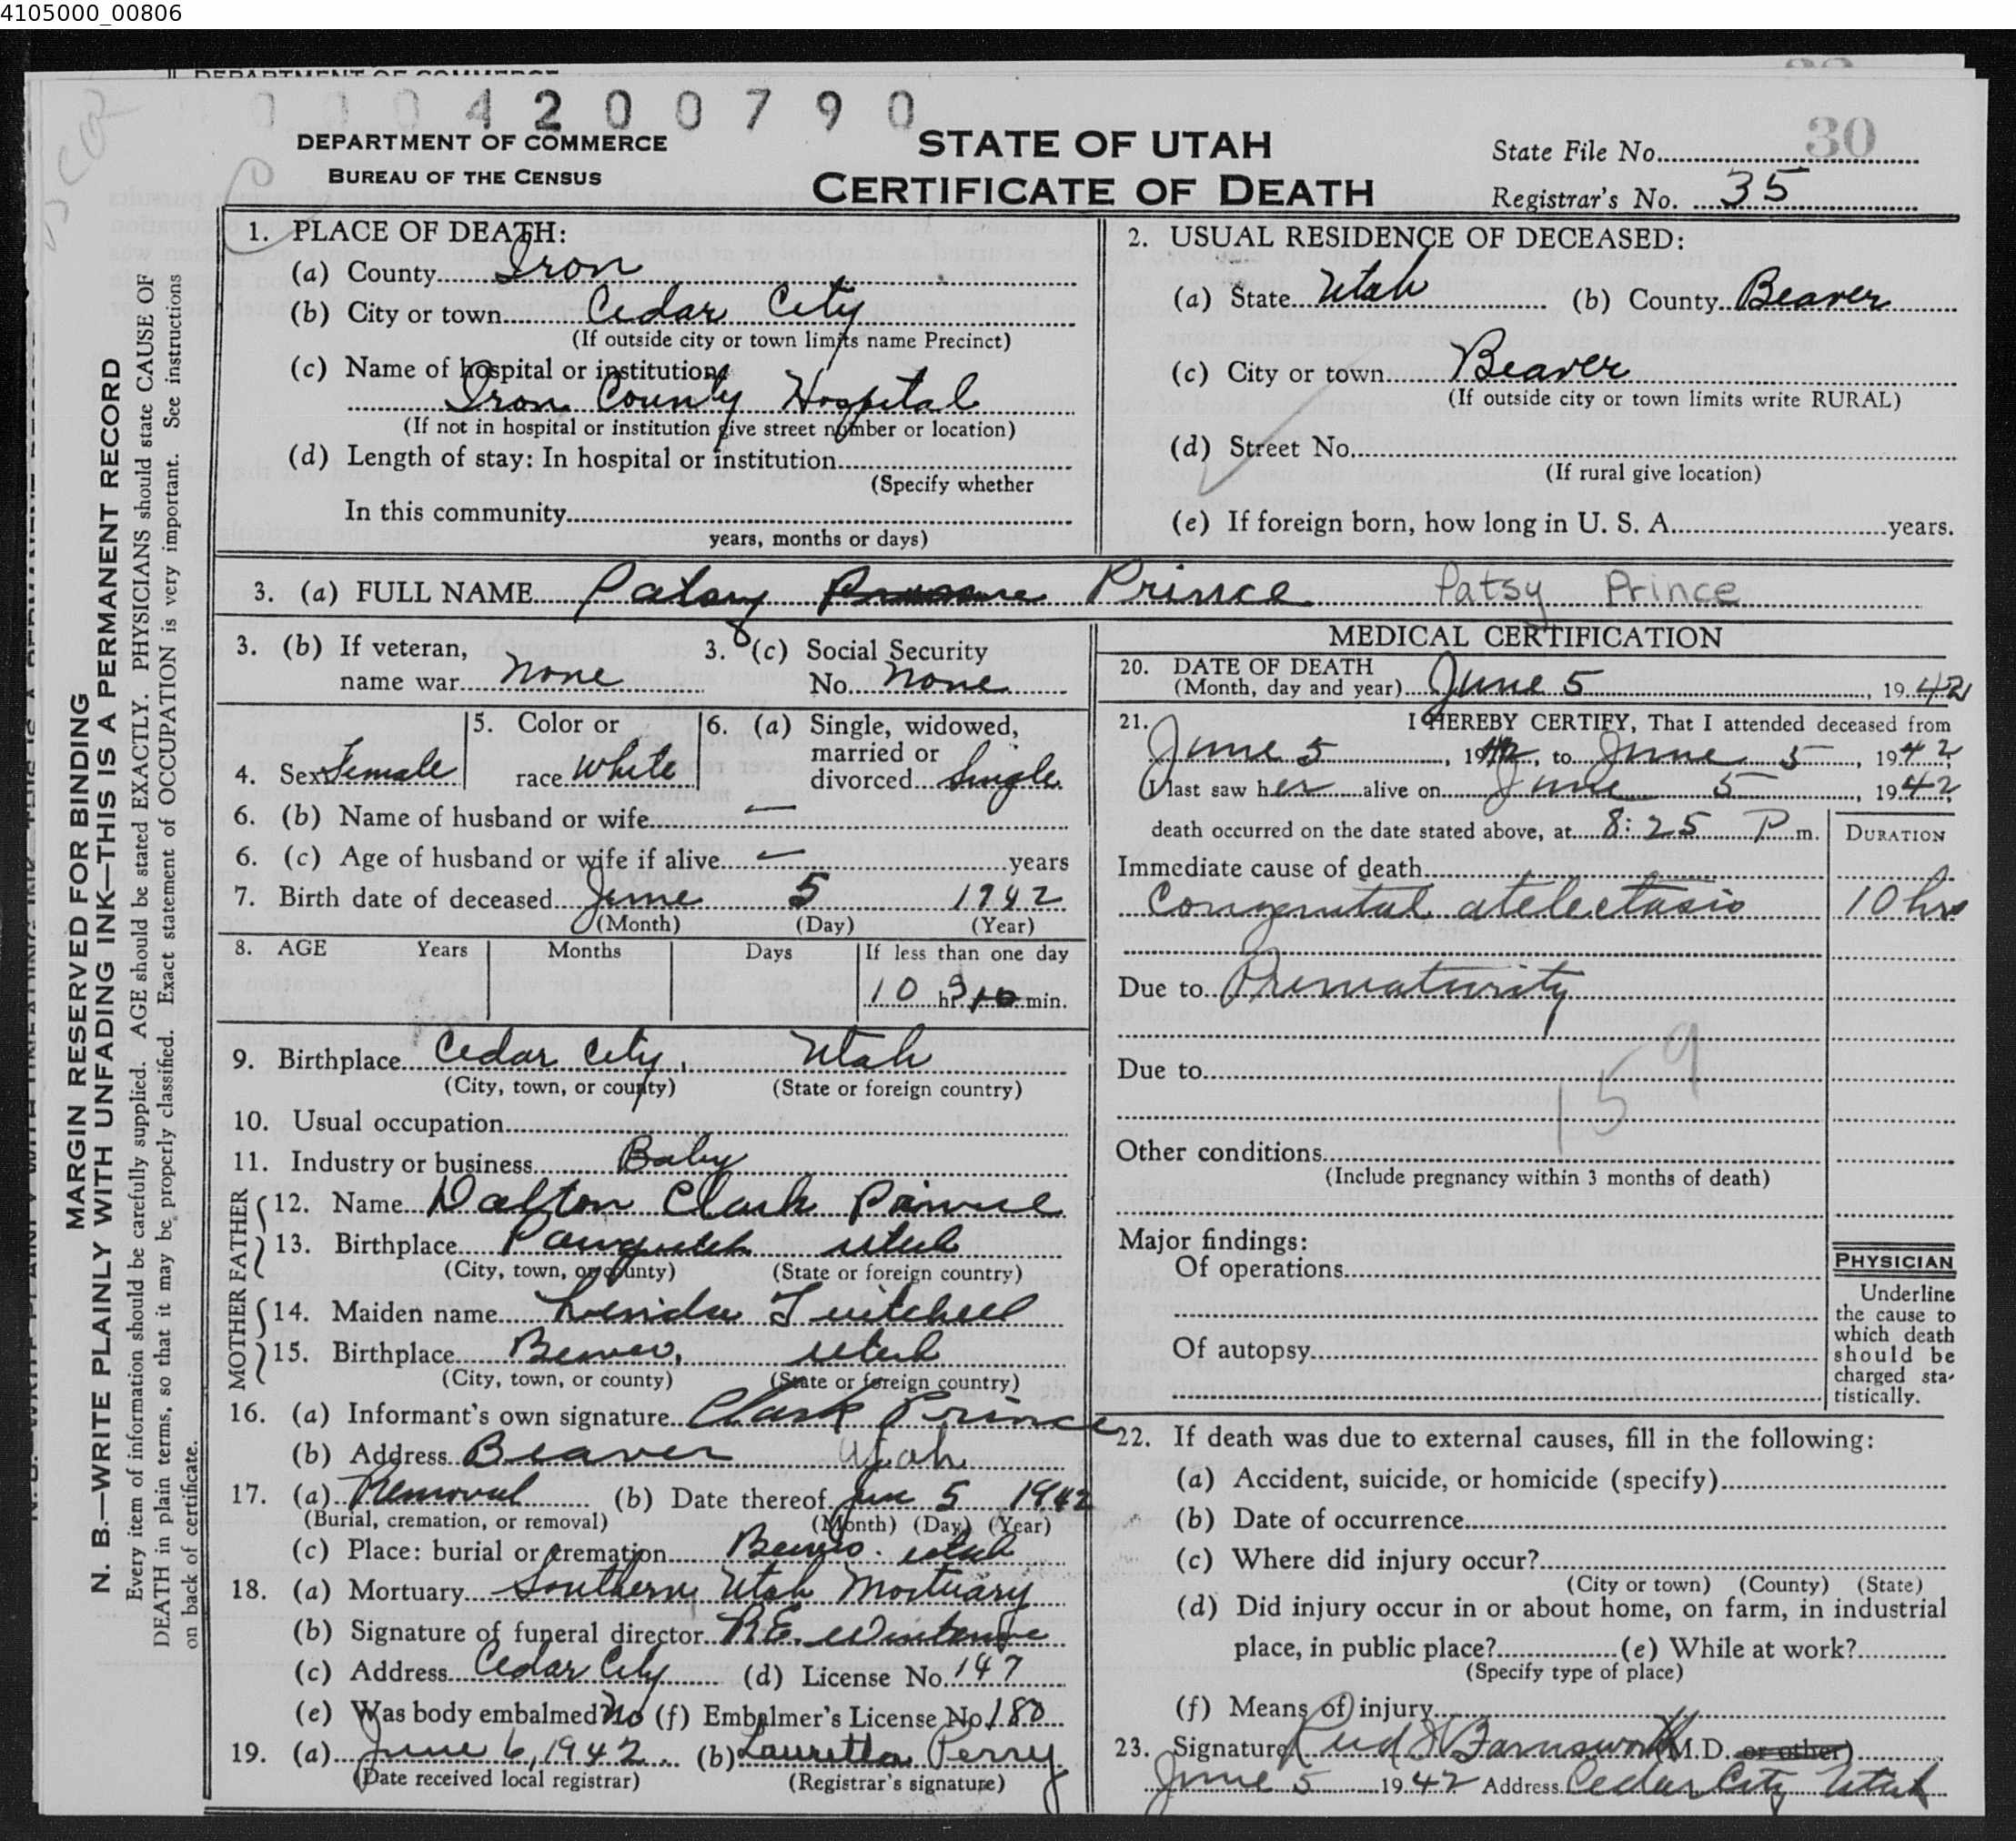 4105000_00806
DEPARTMENT OF COMMERCE
0 0 0 4 2 0 0 7 9 0
30
DEPARTMENT OF COMMERCE
BUREAU OF THE CENSUS
STATE OF UTAH
CERTIFICATE OF DEATH
State File No.
Registrar's No. 35
MARGIN RESERVED FOR BINDING
N. B.—WRITE PLAINLY WITH UNFADING INK—THIS IS A PERMANENT RECORD
Every item of information should be carefully supplied. AGE should be stated EXACTLY. PHYSICIANS should state CAUSE OF
DEATH in plain terms, so that it may be properly classified. Exact statement of OCCUPATION is very important. See instructions
on back of certificate.
1. PLACE OF DEATH:
(a) County Iron
(b) City or town Cedar City
(If outside city or town limits name Precinct)
(c) Name of hospital or institution
Iron County Hospital
(If not in hospital or institution give street number or location)
(d) Length of stay: In hospital or institution
(Specify whether
In this community
years, months or days)
2. USUAL RESIDENCE OF DECEASED:
(a) State Utah (b) County Beaver
(c) City or town Beaver
(If outside city or town limits write RURAL)
(d) Street No.
(If rural give location)
(e) If foreign born, how long in U. S. A. years.
3. (a) FULL NAME Patsy Prince Patsy Prince
3. (b) If veteran,
name war none
3. (c) Social Security
No. none
4. Sex Female
5. Color or
race White
6. (a) Single, widowed,
married or
divorced Single
6. (b) Name of husband or wife —
6. (c) Age of husband or wife if alive — years
7. Birth date of deceased June 5 1942
(Month) (Day) (Year)
8. AGE Years Months Days If less than one day
10 hr min.
9. Birthplace Cedar City, Utah
(City, town, or county) (State or foreign country)
10. Usual occupation
11. Industry or business Baby
FATHER
12. Name Dalton Clark Prince
13. Birthplace Panguitch Utah
(City, town, or county) (State or foreign country)
MOTHER
14. Maiden name Twitchell
15. Birthplace Beaver, Utah
(City, town, or county) (State or foreign country)
16. (a) Informant's own signature Clark Prince
(b) Address Beaver Utah
17. (a) Removal (b) Date thereof June 5 1942
(Burial, cremation, or removal) (Month) (Day) (Year)
(c) Place: burial or cremation Beaver. Utah
18. (a) Mortuary Southern Utah Mortuary
(b) Signature of funeral director R.E.
(c) Address Cedar City (d) License No. 147
(e) Was body embalmed No (f) Embalmer's License No. 180
19. (a) June 6, 1942 (b) Lauretta Perry
(Date received local registrar) (Registrar's signature)
MEDICAL CERTIFICATION
20. DATE OF DEATH
(Month, day and year) June 5, 1942
21. I HEREBY CERTIFY, That I attended deceased from
June 5, 1942, to June 5, 1942
I last saw her alive on June 5, 1942
death occurred on the date stated above, at 8:25 P m.
DURATION
Immediate cause of death
Congenital atelectasis 10 hrs
Due to Prematurity
159
Due to
Other conditions
(Include pregnancy within 3 months of death)
Major findings:
Of operations
Of autopsy
PHYSICIAN
Underline
the cause to
which death
should be
charged sta-
tistically.
22. If death was due to external causes, fill in the following:
(a) Accident, suicide, or homicide (specify)
(b) Date of occurrence
(c) Where did injury occur?
(City or town) (County) (State)
(d) Did injury occur in or about home, on farm, in industrial
place, in public place? (e) While at work?
(Specify type of place)
(f) Means of injury
23. Signature Farnsworth (M.D. or other)
June 5 1942 Address Cedar City Utah